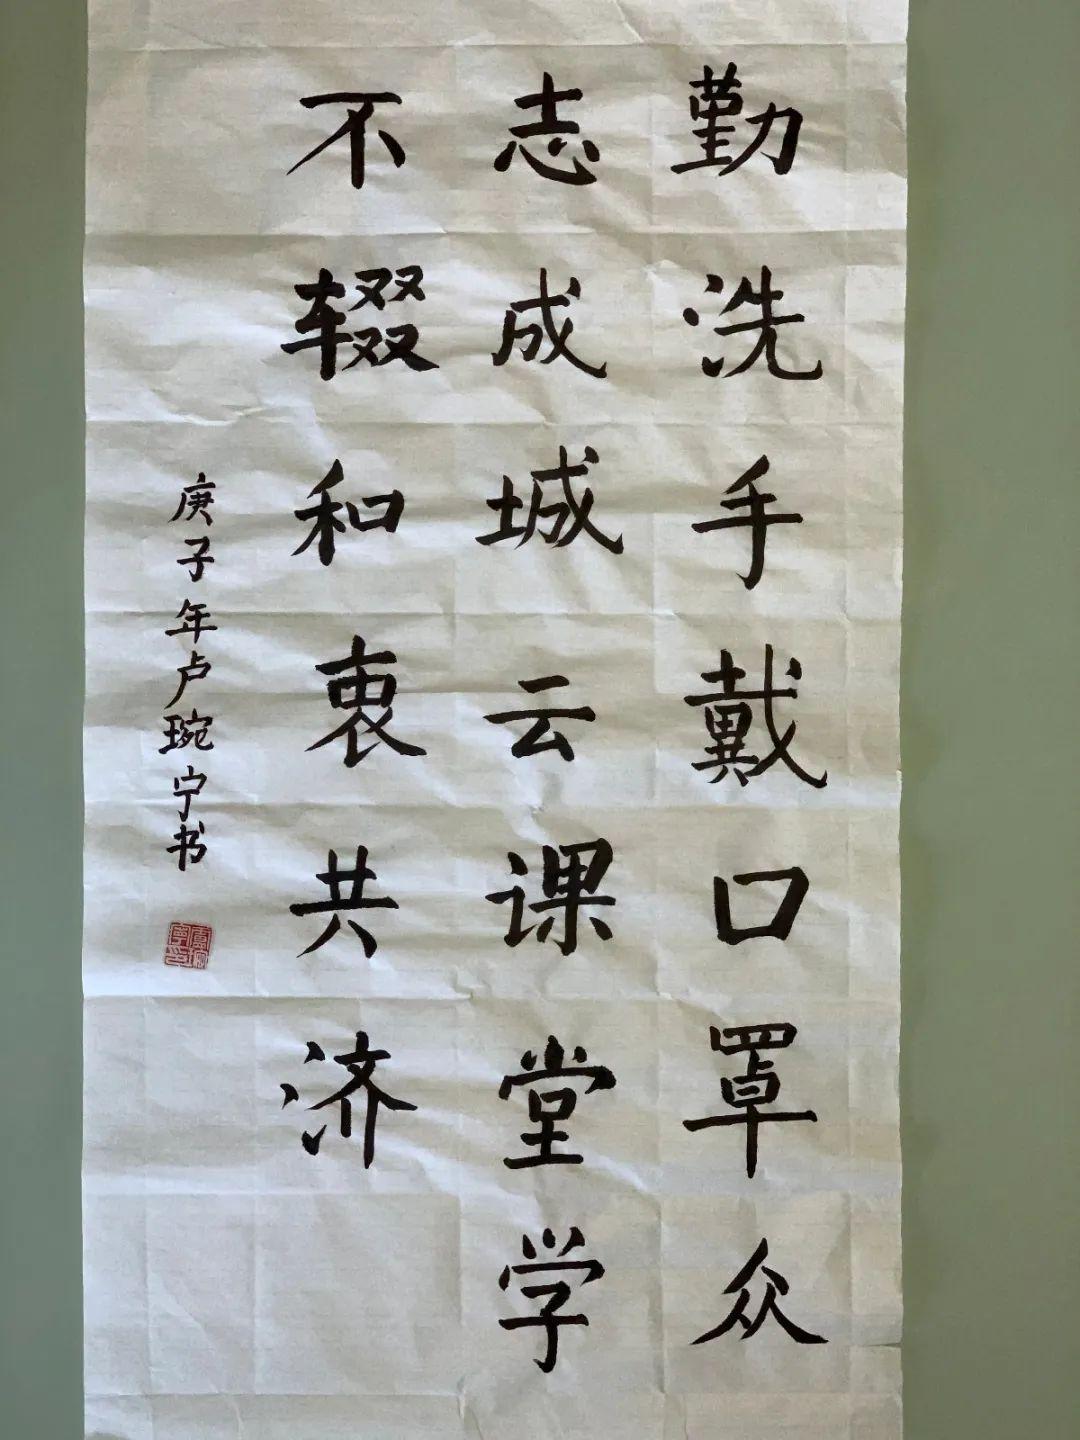 勤洗手戴口罩众
志成城云课堂学
不辍和衷共济
庚子年卢琬宁书